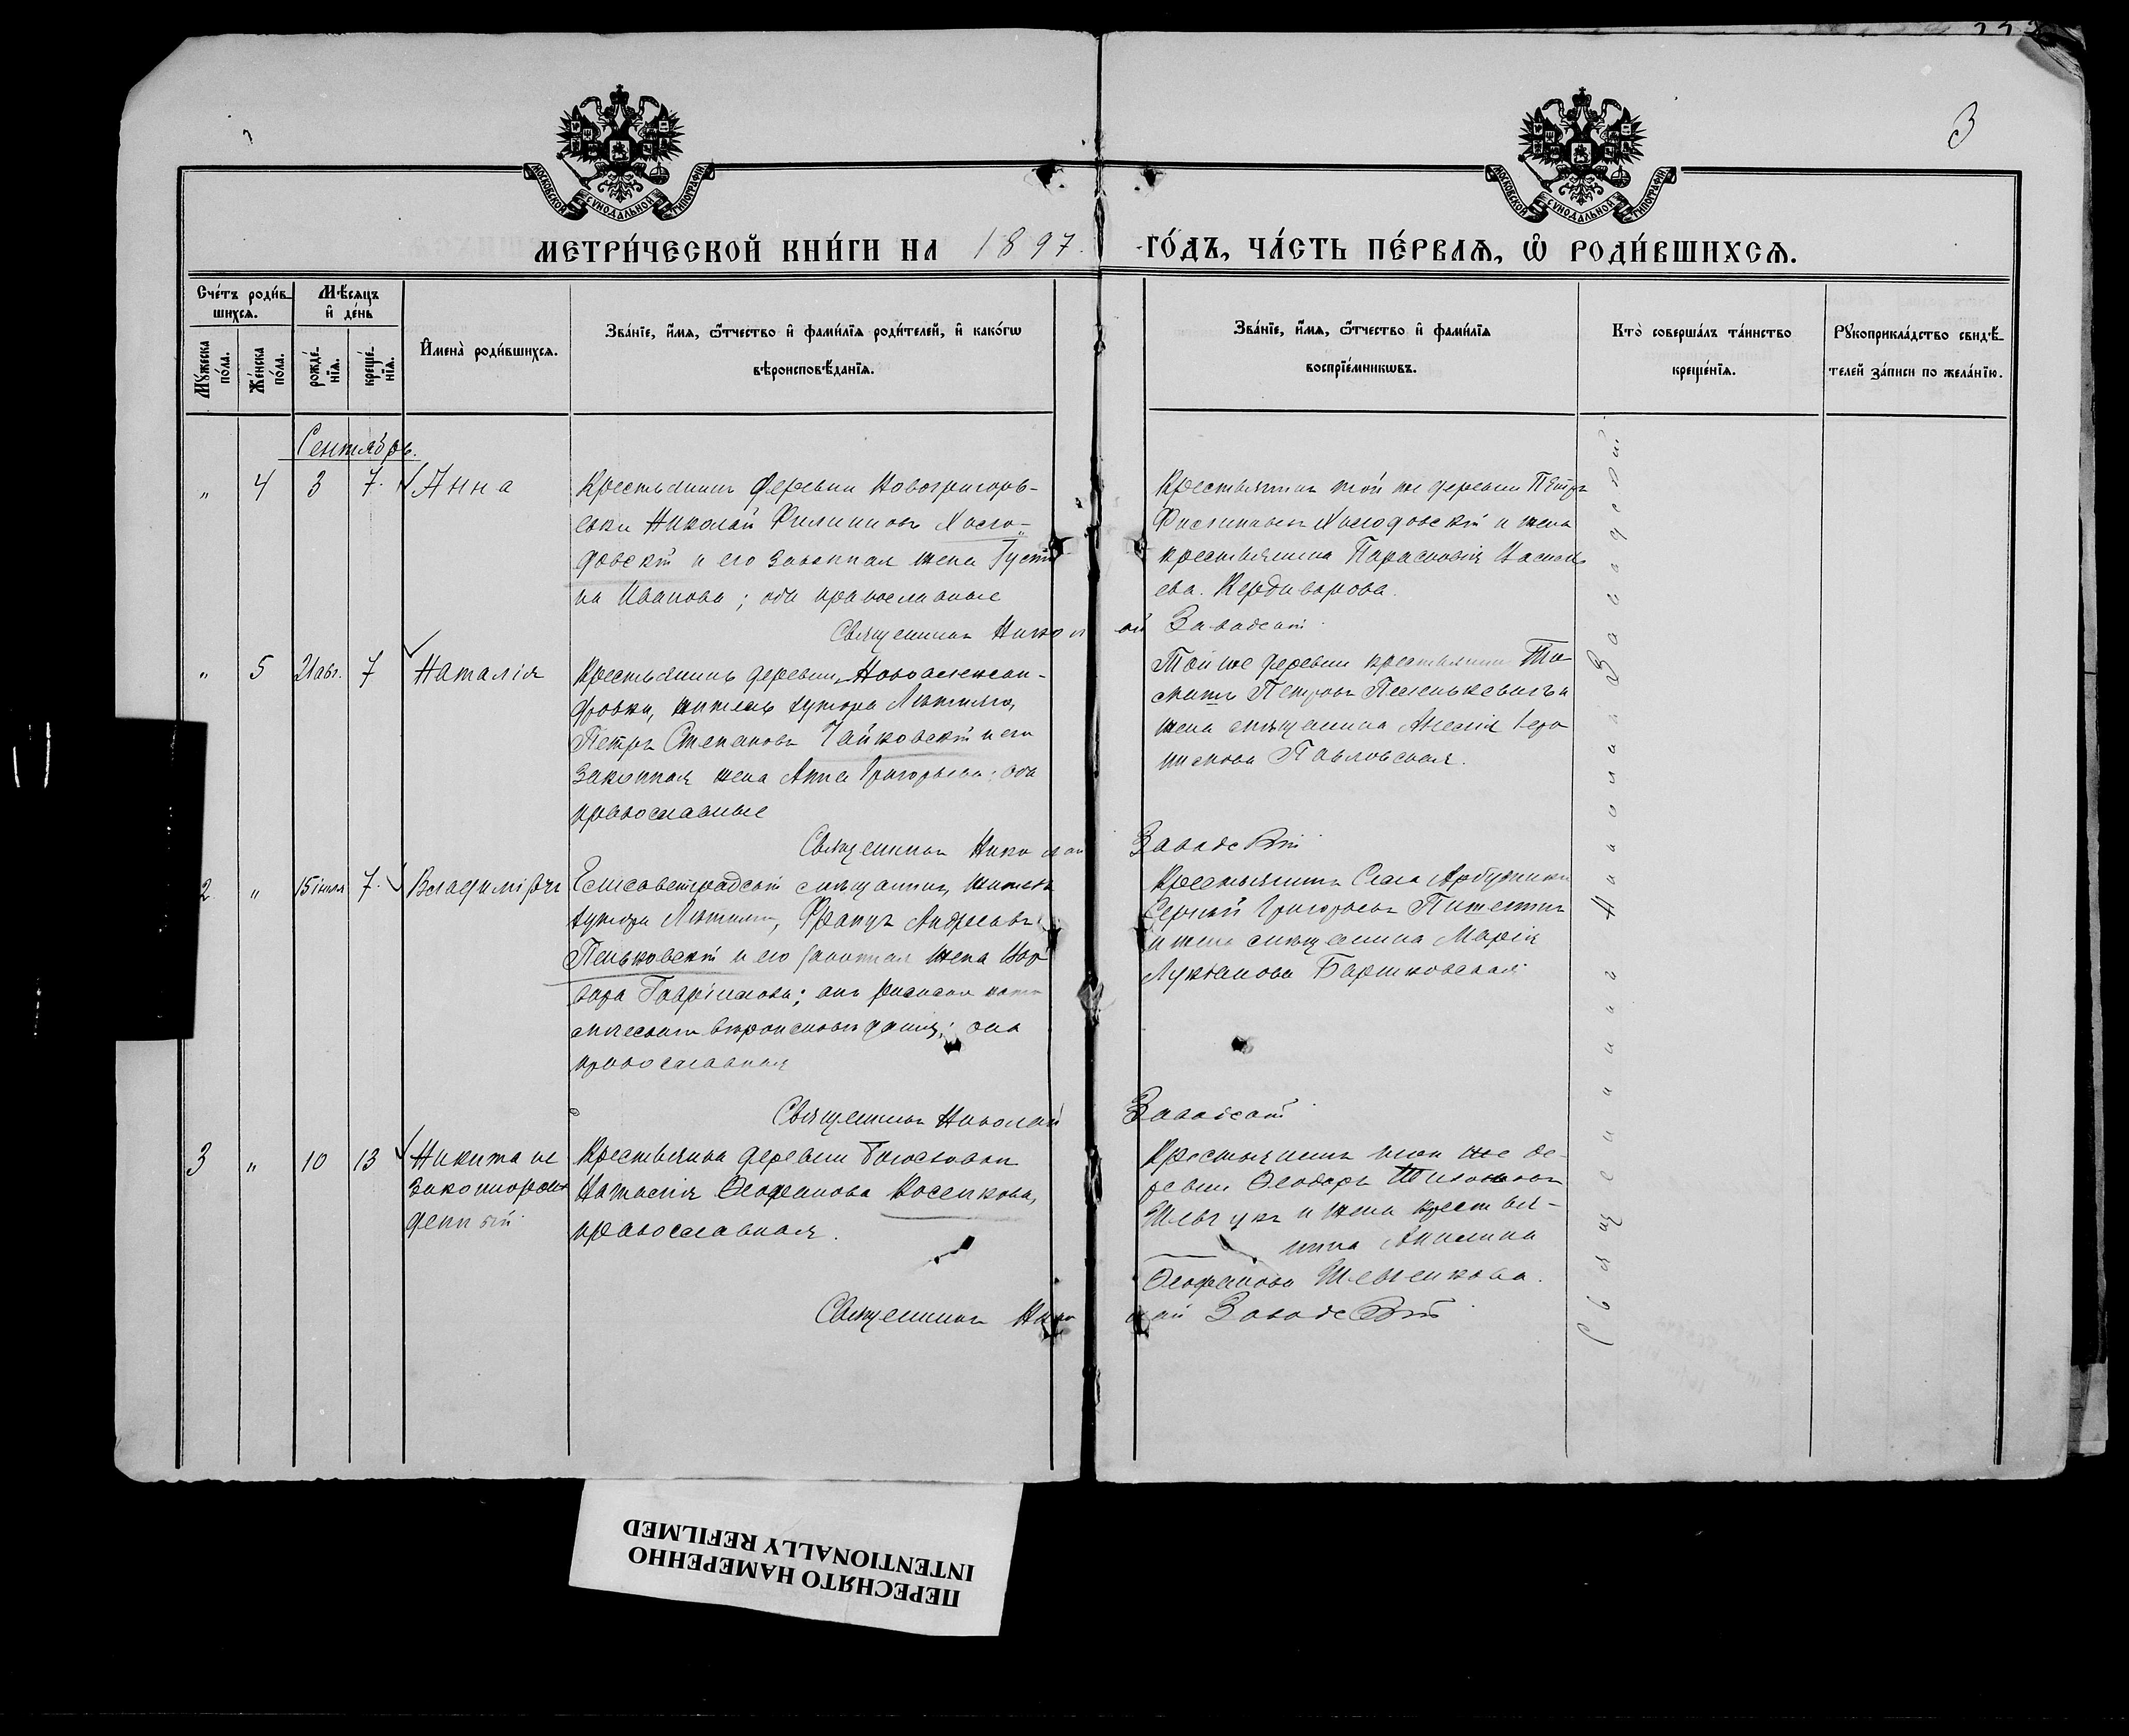 3
МОСКОВСКОЙ СѴНОДАЛЬНОЙ ТИПОГРАФІИ
МОСКОВСКОЙ СѴНОДАЛЬНОЙ ТИПОГРАФІИ
МЕТРИ́ЧЕСКОЙ КНИ́ГИ НА 1897 ГО́ДЪ, ЧА́СТЬ ПЕ́РВАѦ, Ѡ҆ РОДИ́ВШИХСѦ.
Сче́тъ роди́в-
шихсѧ.
Мѣ́сѧцъ
и҆ де́нь
Мꙋ́жеска
по́ла.
Же́нска
по́ла.
рожде́-
нїѧ.
креще́-
нїѧ.
И҆мена̀ роди́вшихсѧ.
Зва́нїе, и҆́мѧ, ѻ҆́тчество и҆ фами́лїѧ роди́телей, и҆ како́гѡ
вѣроисповѣ́данїѧ.
Зва́нїе, и҆́мѧ, ѻ҆́тчество и҆ фами́лїѧ
воспрїе́мникѡвъ.
Кто̀ соверша́лъ та́инство
креще́нїѧ.
Рꙋкоприкла́дство свидѣ́-
телей за́писи по жела́нїю.
Сентябрь.
" 4 3 7. Анна
Крестьянинъ деревни Новогригорь-
евки Николай Филиповъ Холо-
довскій и его законная жена Густи
на Иванова; оба православные
Крестьянинъ той же деревни Петръ
Филиповъ Холодовскій и жена
крестьянина Параскевія
ева. Кердиварова.
Священникъ Николай Завадскій
" 5 21 авг. 7 Наталія
Крестьянинъ деревни Новоалексан-
дровки, житель хутора Лютина,
Петръ Степановъ Чайковскій и его
законная жена Анна Григорьева; оба
православные
Той же деревни крестьянинъ
Петровъ и
жена мѣщанина
Павловская.
Священникъ Николай Завадскій
2 " 15 іюля 7. Владиміръ
Елисаветградскій мѣщанинъ, житель
хутора Лютина, Францъ Андреевъ
Пеньковскій и его законная жена Вар
вара Гавріилова; онъ римско като
лическаго вѣроисповѣданія; она
православная
Крестьянинъ села Арбузинки
Сергѣй Григорьевъ
и жена мѣщанина Марія
Лукіанова
Священникъ Николай Завадскій
3 " 10 13 Никита не
законнорож
денный
Крестьянка деревни Богословки
Наталія Ѳеофанова Косенкова,
православная.
Крестьянинъ той же де-
ревни Ѳеодоръ
Шевчукъ и жена крестья-
нина Акилина
Ѳеофанова Шевченкова.
Священникъ Николай Завадскій
Священникъ Николай Завадскій
ПЕРЕСНЯТО НАМЕРЕННО
INTENTIONALLY REFILMED